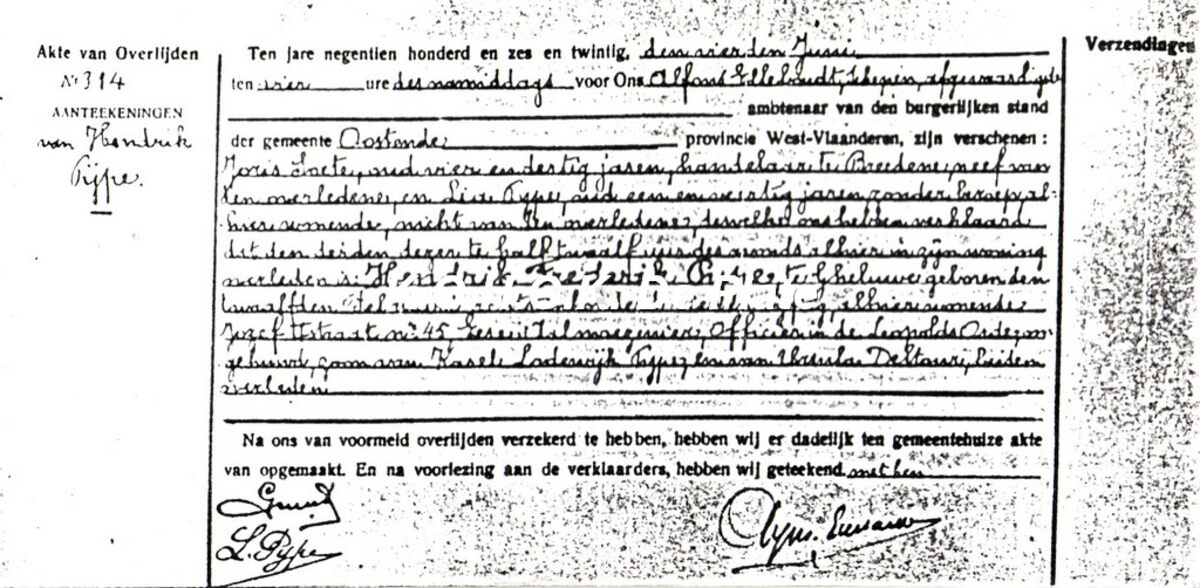 Akte van Overlijden
Nr 314
AANTEEKENINGEN
van Hendrik
Pype.
Ten jare negentien honderd en zes en twintig, den vierden Juni
ten vier ure des namiddags voor Ons Alfons Elleboudt, Schepen, afgevaardigde
ambtenaar van den burgerlijken stand
der gemeente Oostende provincie West-Vlaanderen, zijn verschenen :
Joris oud vier en dertig jaren, handelaar te Breedene, neef van
den overledene, en Pype, oud een en jaren, zonder beroep, al-
hier wonende, nicht van den overledene, dewelke ons hebben verklaard
dat den derden dezer te half twaalf ure des avonds alhier in zijn woning
overleden is: Hendrik Frederik te Gheluwe geboren den
twaalfden alhier wonende
Jozef II straat nr 45, Officier in de Leopolds Orde, on-
gehuwd, zoon van Karel Lodewijk Pype, en van Ursula beiden
overleden
Na ons van voormeld overlijden verzekerd te hebben, hebben wij er dadelijk ten gemeentehuize akte
van opgemaakt. En na voorlezing aan de verklaarders, hebben wij geteekend met hen
L. Pype
Verzendingen